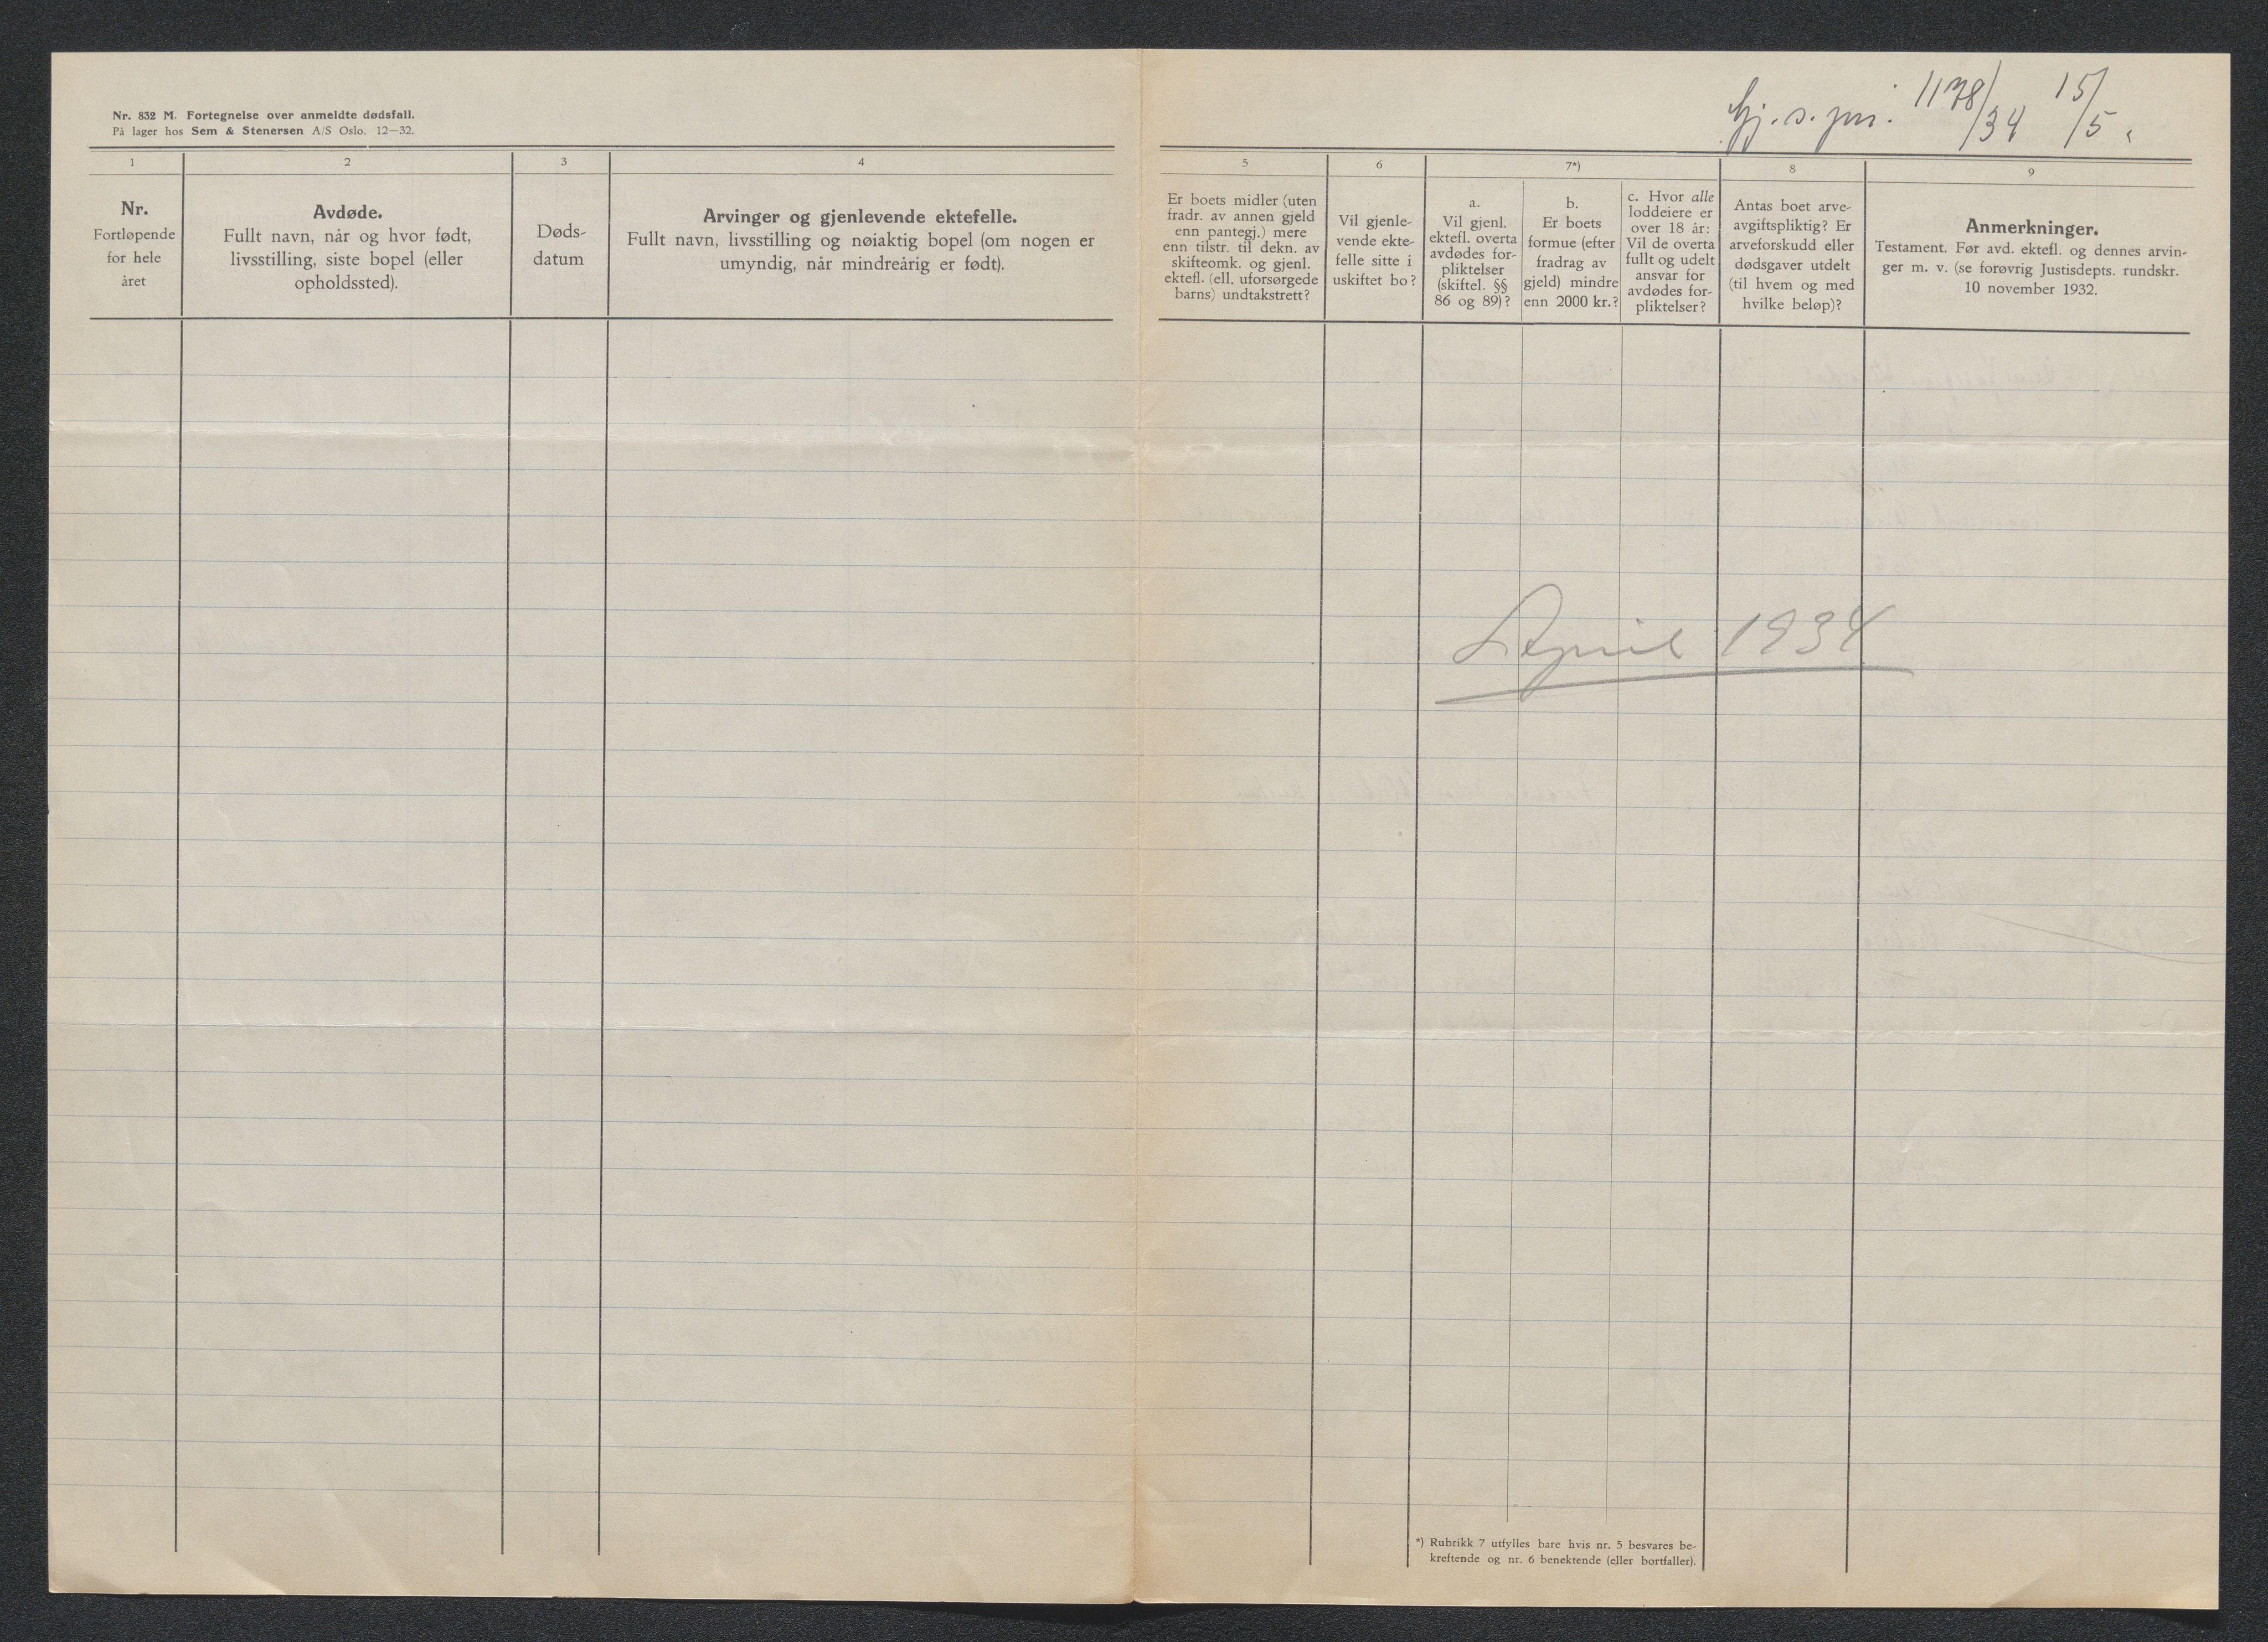 Nr. 832 M. Fortegnelse over anmeldte dødsfall.
På lager hos Sem & Stenersen A/S Oslo. 12—32.
1178/34 15/5.
1
Nr.
Fortløpende
for hele
året
2
Avdøde.
Fullt navn, når og hvor født,
livsstilling, siste bopel (eller
opholdssted).
3
Døds-
datum
4
Arvinger og gjenlevende ektefelle.
Fullt navn, livsstilling og nøiaktig bopel (om nogen er
umyndig, når mindreårig er født).
5
Er boets midler (uten
fradr. av annen gjeld
enn pantegj.) mere
enn tilstr. til dekn. av
skifteomk. og gjenl.
ektefl. (ell. uforsørgede
barns) undtakstrett?
6
Vil gjenle-
vende ekte-
felle sitte i
uskiftet bo?
7*)
a.
Vil gjenl.
ektefl. overta
avdødes for-
pliktelser
(skiftel. §§
86 og 89)?
b.
Er boets
formue (efter
fradrag av
gjeld) mindre
enn 2000 kr.?
c. Hvor alle
loddeiere er
over 18 år:
Vil de overta
fullt og udelt
ansvar for
avdødes for-
pliktelser?
8
Antas boet arve-
avgiftspliktig? Er
arveforskudd eller
dødsgaver utdelt
(til hvem og med
hvilke beløp)?
9
Anmerkninger.
Testament. Før avd. ektefl. og dennes arvin-
ger m. v. (se forøvrig Justisdepts. rundskr.
10 november 1932.
April 1934
*) Rubrikk 7 utfylles bare hvis nr. 5 besvares be-
kreftende og nr. 6 benektende (eller bortfaller).